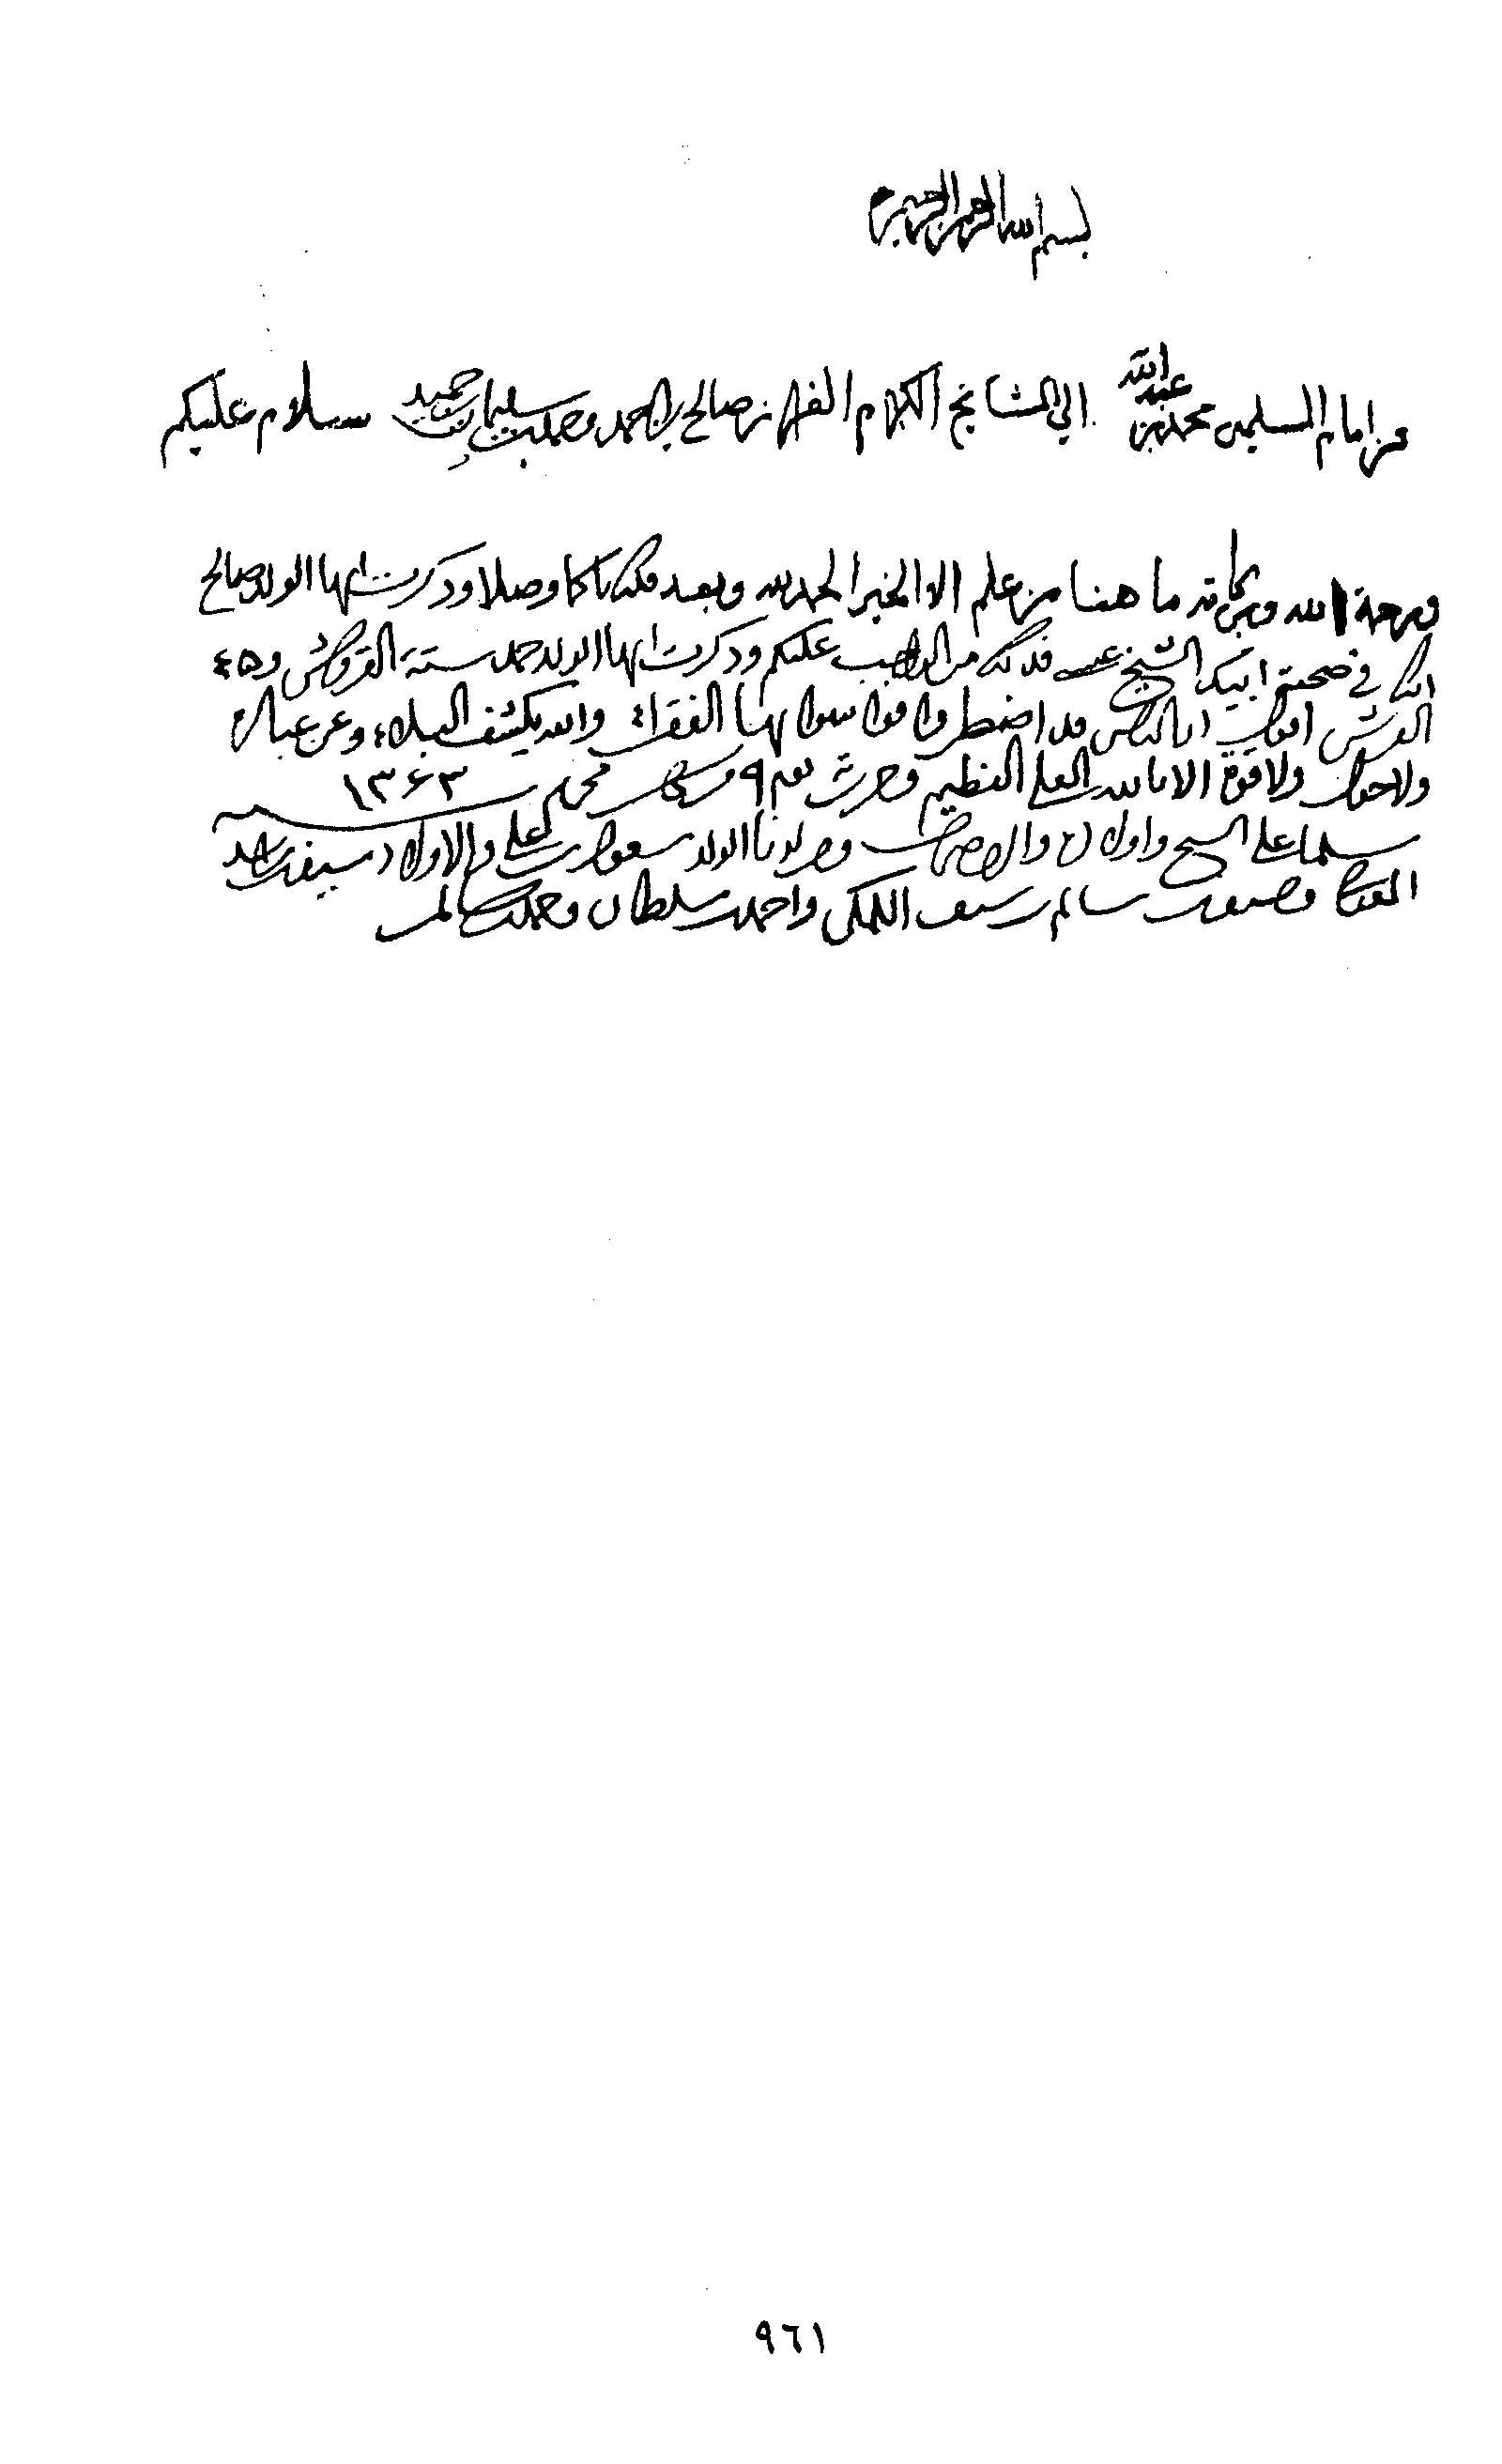 بسم الله الرحمن الرحيم
من امام المسلمين محمد بن عبدالله الى المشايخ الكرام صالح بن احمد ومحمد بن سليمان بن حميد سلام عليكم
ورحمة الله وبركاته ما هنا من علم الا الخير الحمد لله وبعد فكتاباكما وصلا وذكرت ايها الولد صالح
انك في صحة ابيك الشيخ عيسى فذلك من الواجب عليكم وذكرت ايها الولد حمد ستة القروش و٤٥
القرش الناس قد اضطروا فواسوا بها الفقراء والله يكشف البلاء وعن
ولا حول ولا قوة الا بالله العلي العظيم وحرر يوم ٩ من شهر محرم سنة ١٣٦٣
سلما على الشيخ واولاده والاصحاب ومن لدنا الولد سعود بن علي والاولاد سيف بن حمد
سالم بن سيف اللمكي واحمد بن سلطان ومحمد بن سالم
٩٦١